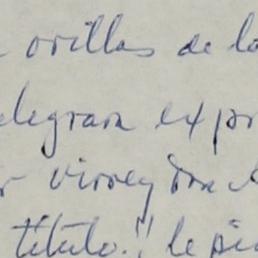 orillas de lo
delegran expr
r virrey Don
título.", le pid